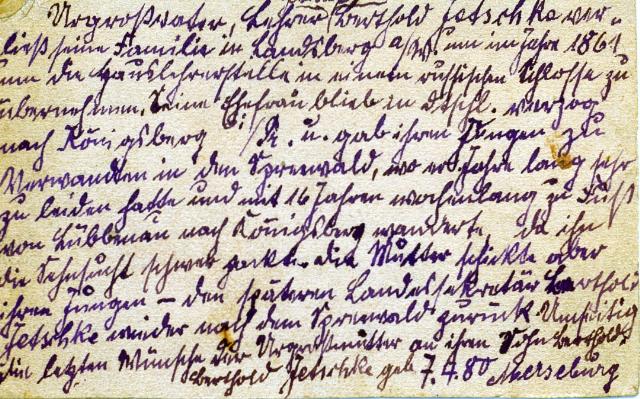 Urgroßvater, Lehrer Berthold Jetschke ver-
ließ seine Familie in Landsberg a/W. um im Jahre 1861
um die Hauslehrerstelle in einem russischen Schlosse zu
übernehmen, Seine Ehefrau blieb in Dtschl. verzog
nach Königsberg i/N. u. gab ihren Jungen zu
Verwandten in den Spreewald, wo er Jahre lang sehr
zu leiden hatte und mit 16 Jahren wochenlang zu Fuß
von Lübbenau nach Königsberg wanderte, da ihn
die Sehnsucht schwer packte. die Mutter schickte aber
ihren Jungen – den späteren Landessekretär Berthold
Jetschke wieder nach dem Spreewald zurück. Umseitig
die letzten Wünsche der Urgroßmutter an ihren Sohn Berthold
Berthold Jetschke geb 7.4.80 Merseburg